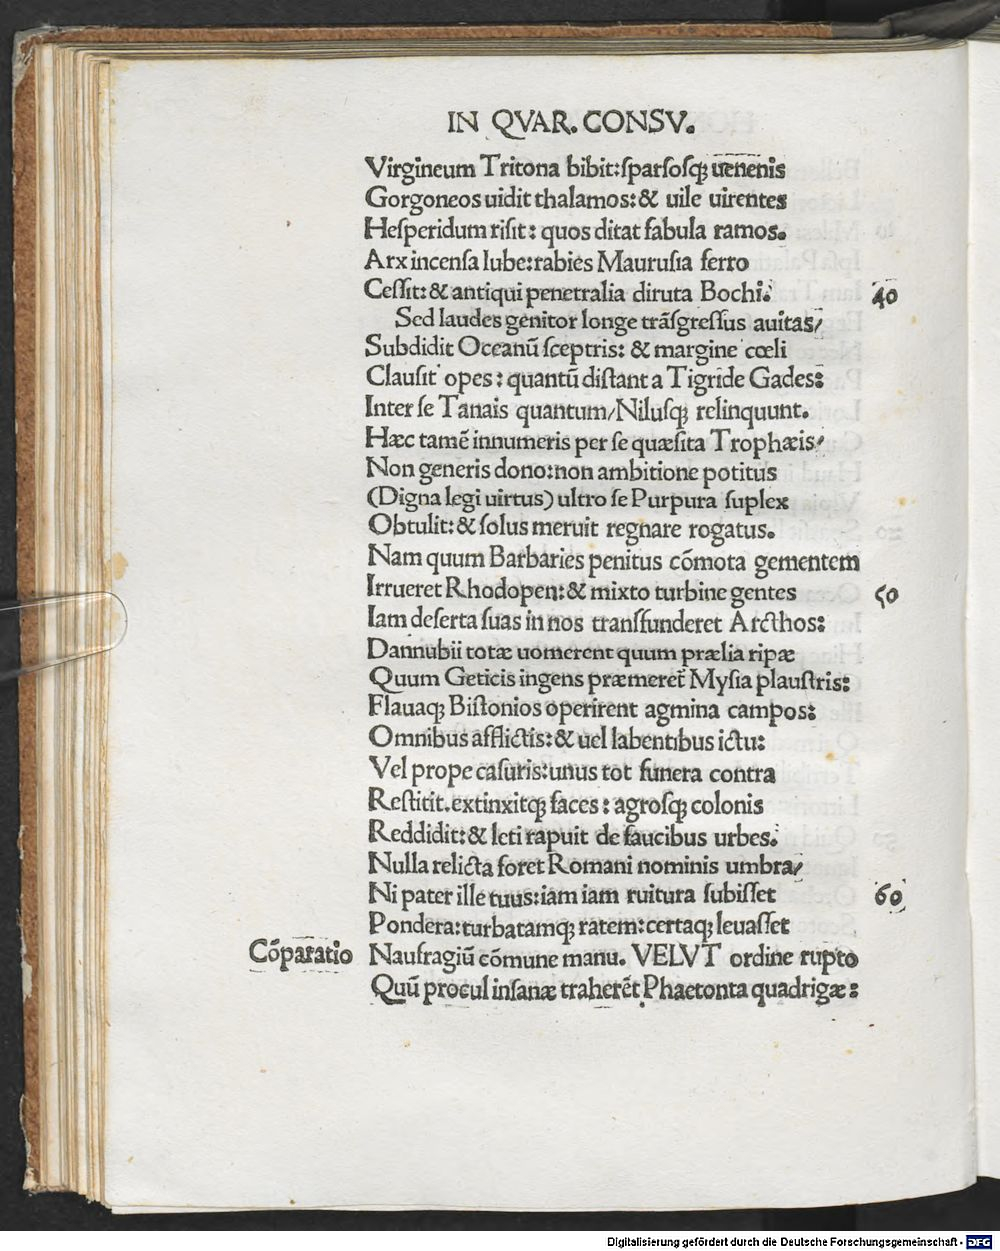 IN QVAR. CONSV.
Virgineum Tritona bibit:sparsosqꝫ uenenis
Gorgoneos uidit thalamos:& uile uirentes
Hesperidum risit: quos ditat fabula ramos.
Arx incensa Iube:rabies Maurusia ferro
Cessit:& antiqui penetralia diruta Bochi. 40
Sed laudes genitor longe trãsgressus auitas/
Subdidit Oceanũ sceptris: & margine cœli
Clausit opes: quantũ distant a Tigride Gades:
Inter se Tanais quantum/Nilusqꝫ relinquunt.
Hæc tamẽ innumeris per se quæsita Trophæis/
Non generis dono:non ambitione potitus
(Digna legi uirtus) ultro se Purpura suplex
Obtulit:& solus meruit regnare rogatus.
Nam quum Barbaries penitus cõmota gementem
Irrueret Rhodopen:& mixto turbine gentes 50
Iam deserta suas in nos transfunderet Arcthos:
Dannubii totæ uomerent quum prælia ripæ
Quum Geticis ingens præmeret̃ Mysia plaustris:
Flauaqꝫ Bistonios operirent agmina campos:
Omnibus afflictis:& uel labentibus ictu:
Vel prope casuris:unus tot funera contra
Restitit.extinxitqꝫ faces: agrosqꝫ colonis
Reddidit:& leti rapuit de faucibus urbes.
Nulla relicta foret Romani nominis umbra/
Ni pater ille tuus:iam iam ruitura subisset 60
Pondera:turbatamqꝫ ratem:certaqꝫ leuasset
Cõparatio Naufragiũ cõmune manu. VELVT ordine rupto
Quũ procul insanæ traherẽt Phaetonta quadrigæ:
Digitalisierung gefördert durch die Deutsche Forschungsgemeinschaft - DFG